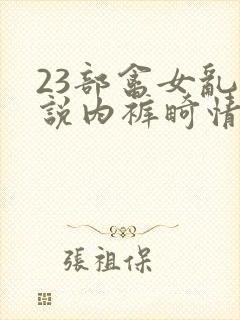 23部畜女亂
説内裤畸情
張祖保